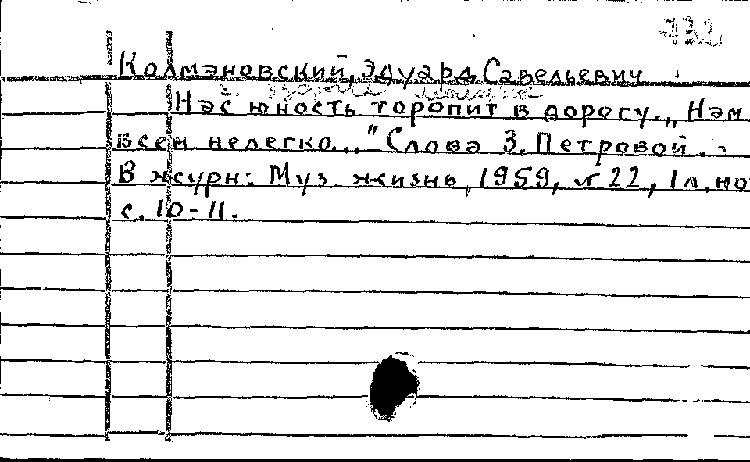 732
Колмановский, Эдуард Савельевич
Нас юность торопит в дорогу. „Нам
всем нелегко..." Слова З. Петровой.
В журн: Муз. жизнь, 1959, № 22, 1 л. но
с. 10-11.